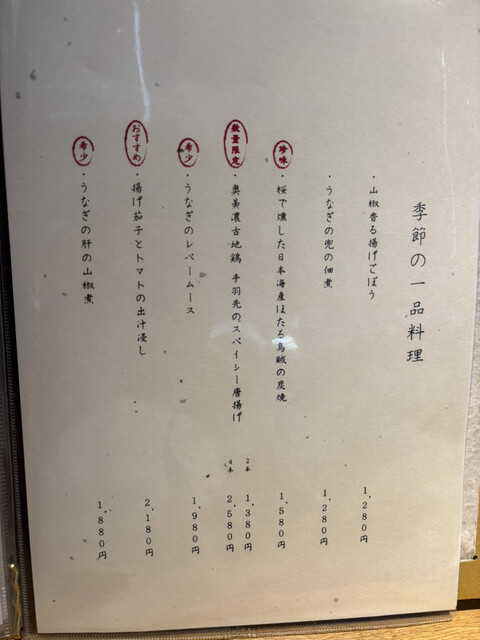 季節の一品料理
・山椒香る揚げごぼう 1,280円
・うなぎの兜の佃煮 1,280円
珍味 ・桜で燻した日本海産ほたる烏賊の炭焼 1,580円
数量限定 ・奥美濃古地鶏 手羽先のスパイシー唐揚げ 2本 1,380円
4本 2,580円
希少 ・うなぎのレバームース 1,980円
おすすめ ・揚げ茄子とトマトの出汁浸し 2,180円
希少 ・うなぎの肝の山椒煮 1,880円